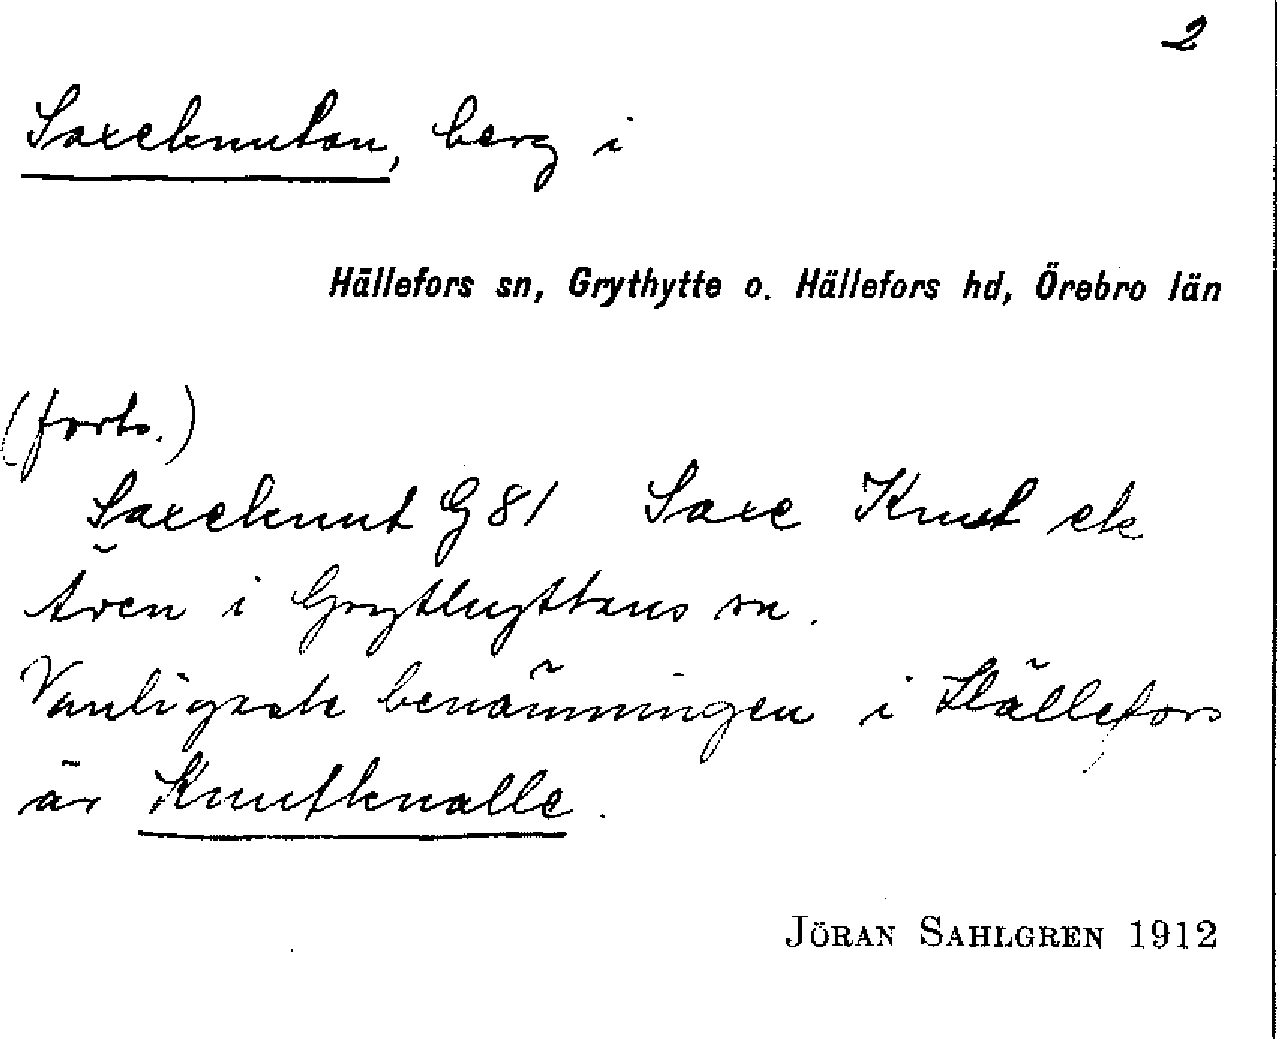 2
Saxeknutan, berg i
Hällefors sn, Grythytte o. Hällefors hd, Örebro län
(forts.)
Saxeknut G 81 Saxe Knut ek
Även i Grythyttans sn.
Vanligaste benämningen i Hällefors
är Knutknalle.
JÖRAN SAHLGREN 1912